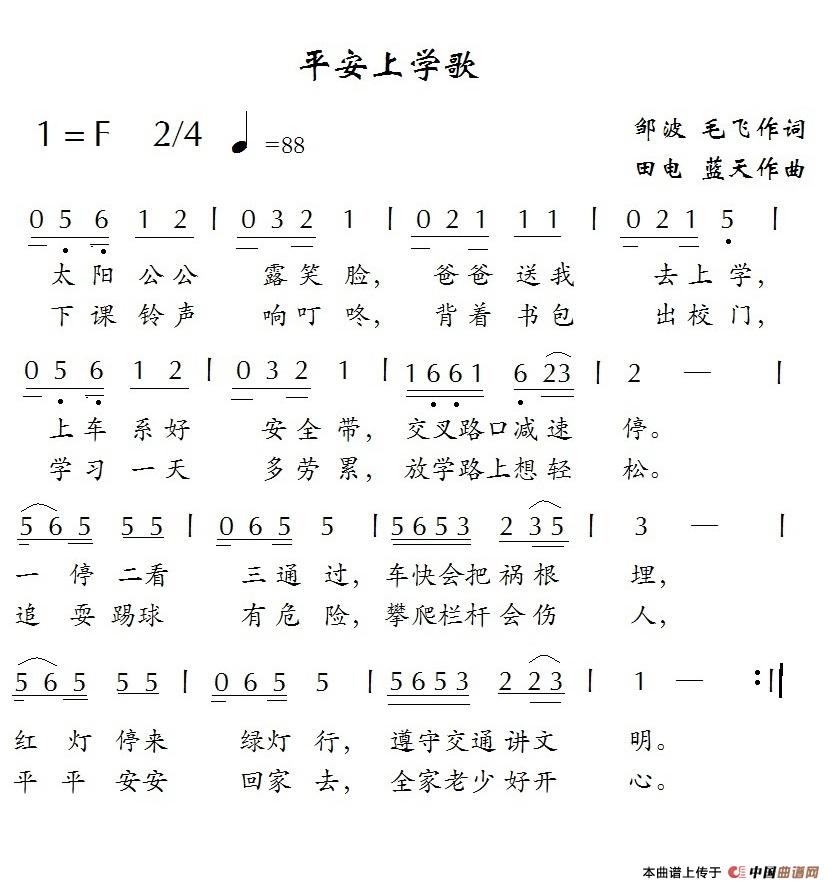 平安上学歌
1=F 2/4 ♩=88
邹波 毛飞作词
田电 蓝天作曲
0 5 6 1 2 | 0 3 2 1 | 0 2 1 1 1 | 0 2 1 5 |
太阳公公 露笑脸, 爸爸送我 去上学,
下课铃声 响叮咚, 背着书包 出校门,
0 5 6 1 2 | 0 3 2 1 | 1 6 6 1 6 2 3 | 2 — |
上车系好 安全带, 交叉路口减速 停。
学习一天 多劳累, 放学路上想轻 松。
5 6 5 5 5 | 0 6 5 5 | 5 6 5 3 2 3 5 | 3 — |
一停二看 三通过, 车快会把祸根 埋,
追耍踢球 有危险, 攀爬栏杆会伤 人,
5 6 5 5 5 | 0 6 5 5 | 5 6 5 3 2 2 3 | 1 — :|
红灯停来 绿灯行, 遵守交通讲文 明。
平平安安 回家去, 全家老少好开 心。
本曲谱上传于 中国曲谱网